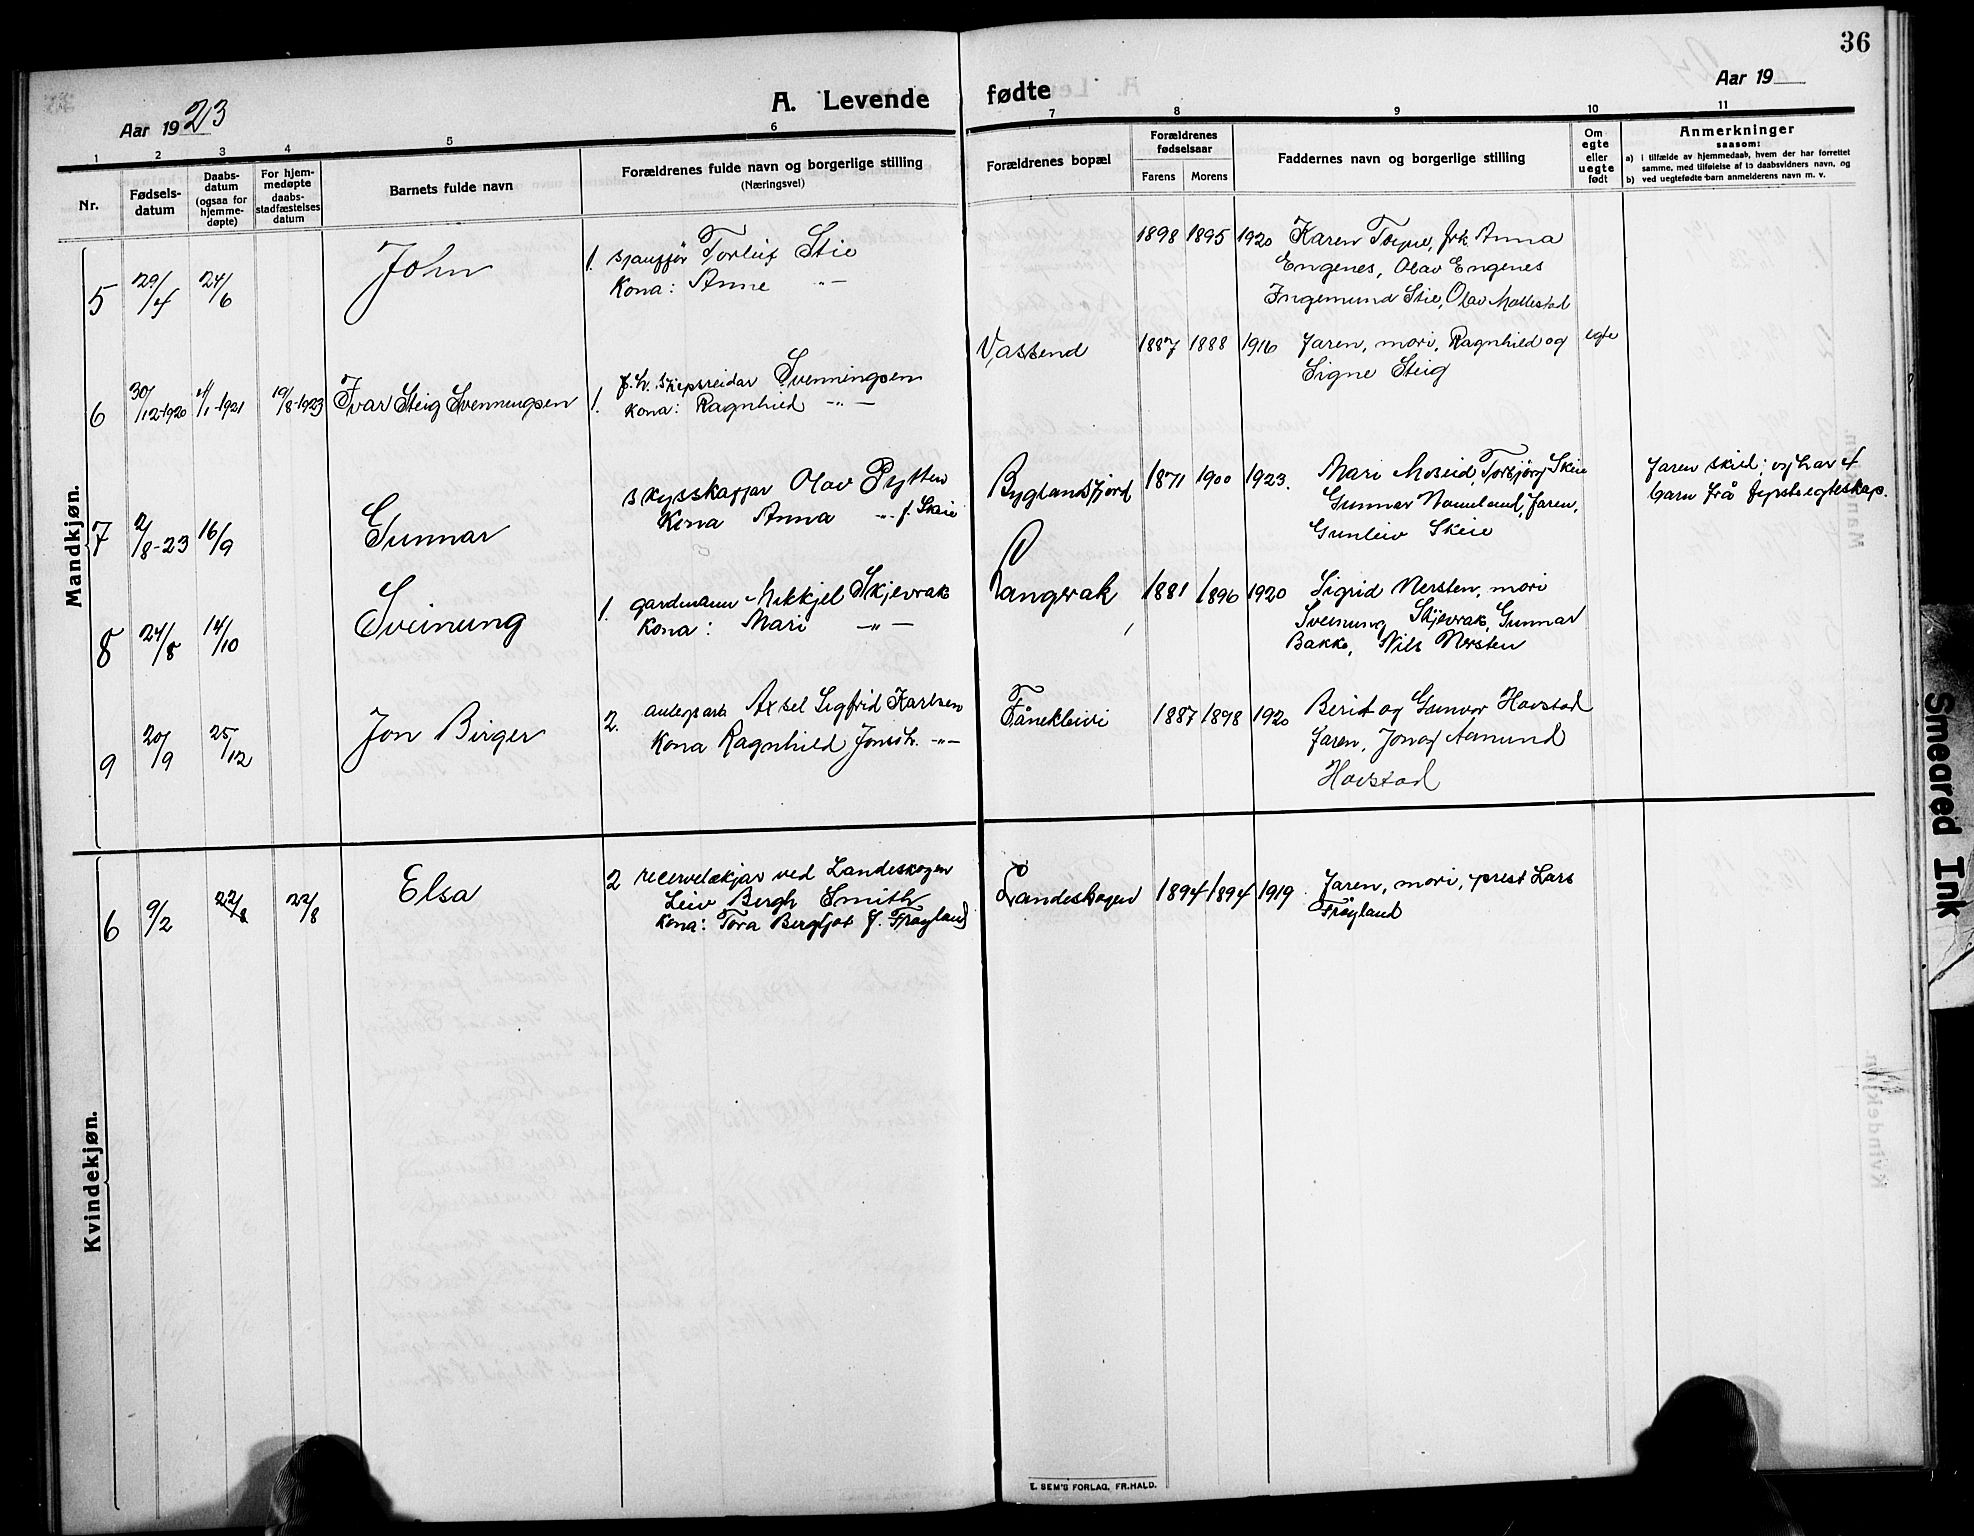 36
Aar 1923
A. Levende fødte
Aar 19
1 2 3 4 5 6 7 8 9 10 11
Nr.
Fødsels-
datum
Daabs-
datum
(ogsaa for
hjemme-
døpte)
For hjem-
medøpte
daabs-
stadfæstelses
datum
Barnets fulde navn
Forældrenes fulde navn og borgerlige stilling
(Næringsvei)
Forældrenes bopæl
Forældrenes
fødselsaar
Farens Morens
Faddernes navn og borgerlige stilling
Om
egte
eller
uegte
født
Anmerkninger
saasom:
a) i tilfælde av hjemmedaab, hvem der har forrettet
samme, med tilføielse af to daabsvidners navn, og
b) ved uegtefødte barn anmelderens navn m. v.
Mandkjøn.
5 29/4 24/6 John
1. sjauffør Torleif Stie
Kona: Anne -"-
1898 1895 1920
Karen , frk Anna
Engenes, Olav Engenes
Ingemund Stie, Olav Mollestad
6 30/12-1920 1/1-1921 19/8-1923 Ivar Steig Svenningsen
1. f. hv. skipsreidar Svenningsen
Kona: Ragnhild -"-
Vassend 1887 1888 1916
Faren, mori, Ragnhild og
Signe Steig
egte
7 2/8-23 16/9 Gunnar
skysskaffar Olav Pytten
Kona Anna -"- f. Skeie
Byglandsfjord 1871 1900 1923.
Mari Moseid, Torbjørg Skeie
Gunnar Nomeland, Faren,
Gunleiv Skeie
Faren skild; og har 4
barn frå fyrste egteskap.
8 24/8 14/10 Sveinung
1. gardmann Mikkjel Skjevrak
Kona: Mari -"-
Langerak 1881 1896 1920
Sigrid Nersten, mori
Sveinung Skjevrak, Gunnar
Bakke, Nils Nersten
9 20/9 25/12 Jon Birger
2. Axsel Sigfrid Karlsen
Kona Ragnhild Jonsd. -"-
Fånekleivi 1887 1898 1920
Berit og Gunvor Hovstad
Faren, Jon og Aamund
Hovstad
Kvindekjøn.
6 9/2 22/8 22/8 Elsa
2 reservelækjar ved Landeskogen
Leiv Bergh Smith
Kona: Tora Bergljot f. Frøyland
Landeskogen 1894 1894 1919
Faren, mori, prest Lars
Frøyland
E. SEM'S FORLAG, FR.HALD.
Smeared Ink